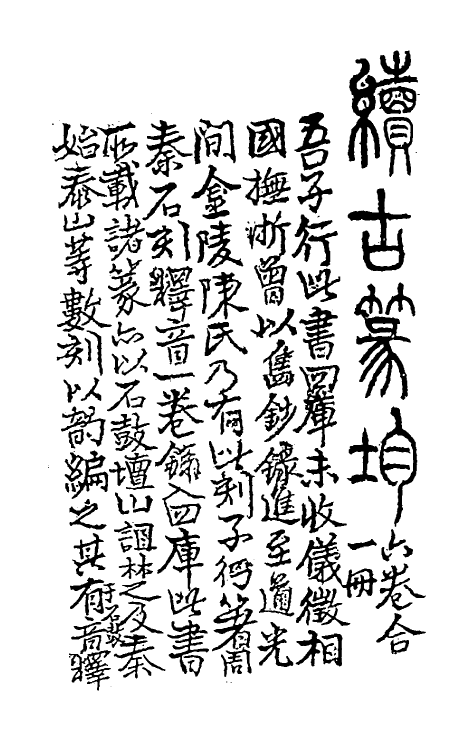 續古篆均六卷合一冊
吾子行此書四庫未收儀徵相
國撫浙曾以舊鈔錄進至道光
間金陵陳氏乃有此刻子行著周
秦石刻釋音一卷錄入四庫此書
所載諸篆亦以石鼓壇山詛楚及秦
始泰山等數刻以韵編之其有音釋